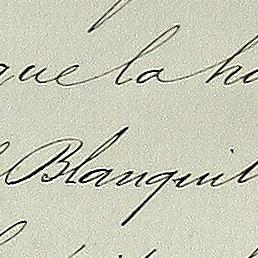 que la ho
Blanquil